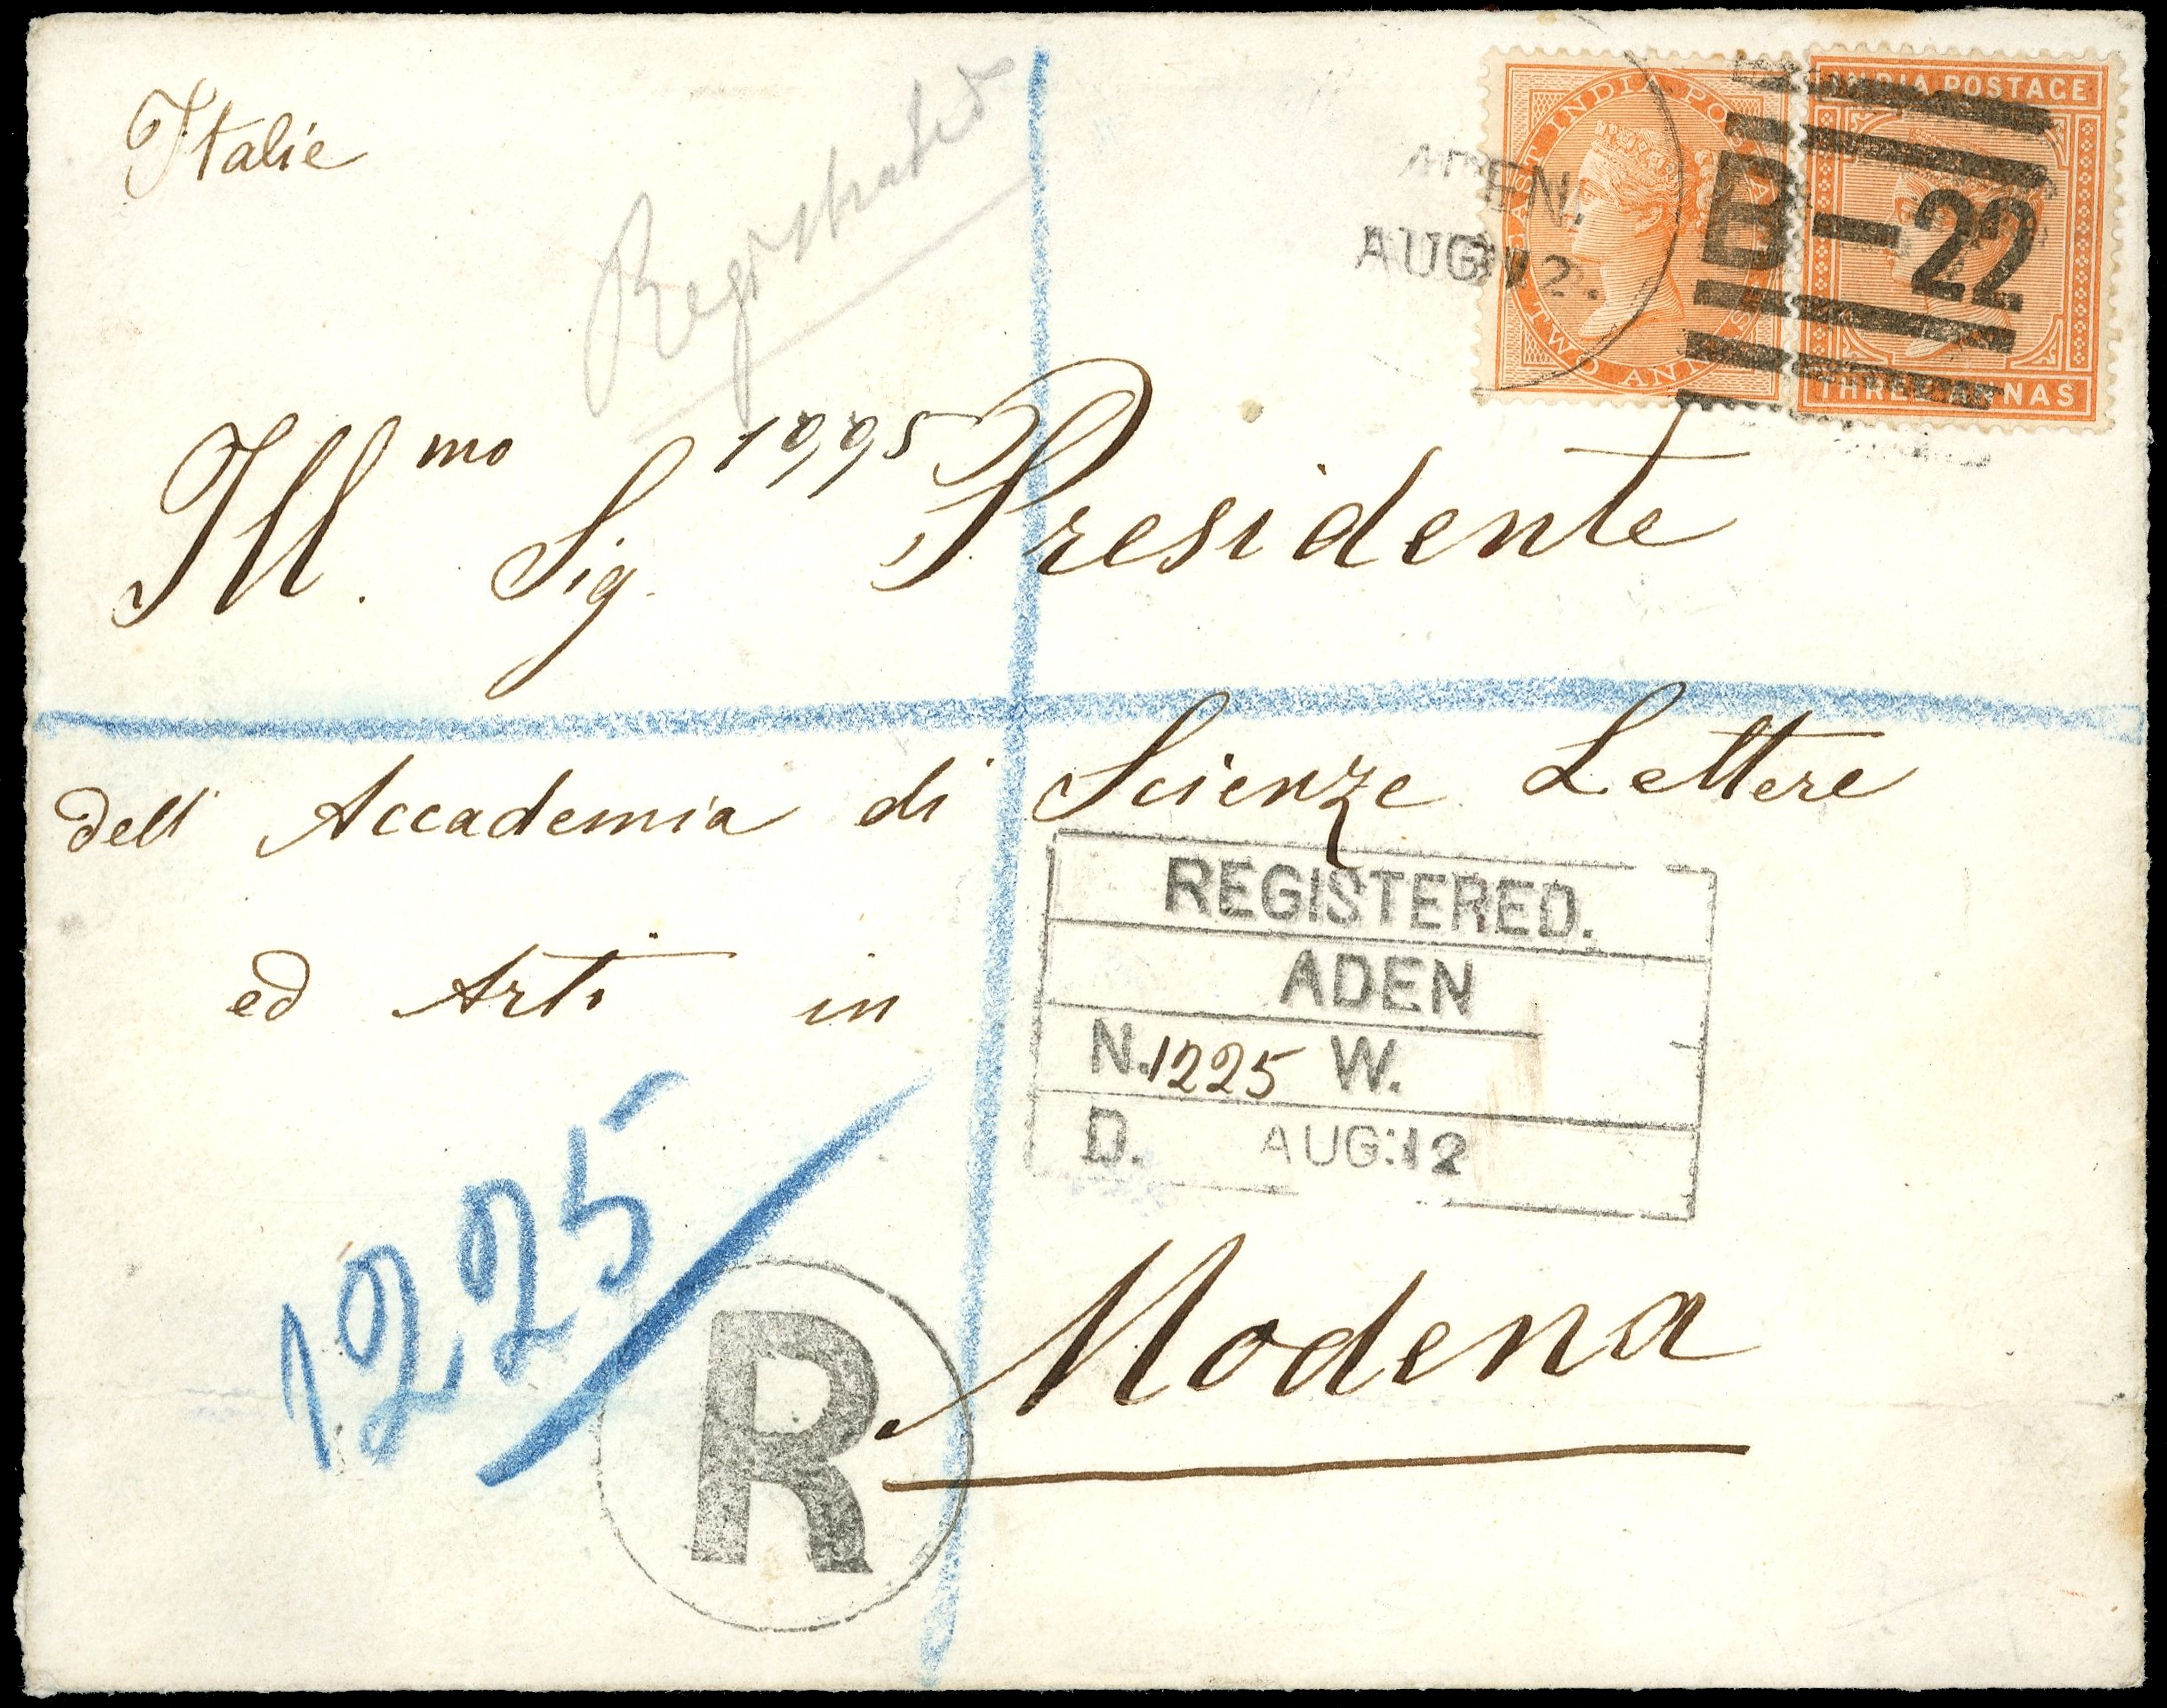 Italie
Registrated
EAST INDIA POSTAGE
TWO ANNAS
INDIA POSTAGE
THREE ANNAS
ADEN.
AUG:12.
B-22
Ill.mo Sig. Presidente
dell' Accademia di Scienze Lettere
ed Arti in
REGISTERED.
ADEN
N.1225 W.
D. AUG:12
1225
R
Modena